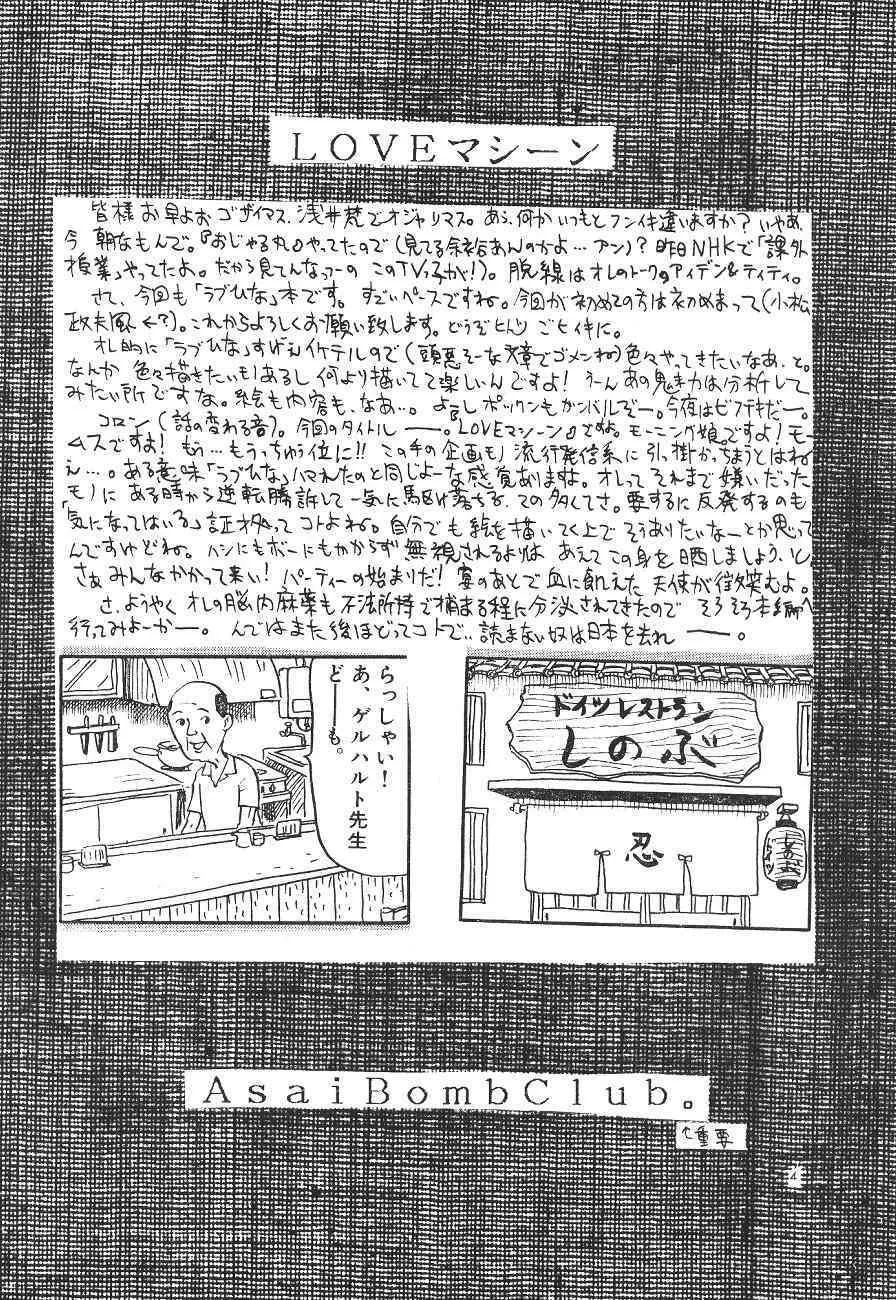 LOVEマシーン
皆様お早よおゴザイマス、浅井梵でオジャリマス。あら、何かいつもとフンイ违いますか? いやあ、
今、朝なもんで。『おじゃる丸』やってたので(見てる余裕あんのかよ…アン)? 昨日NHKで「課外
授業」やってたよ。だから見てんなっつーの このTVっ子が!)。脱線はオレのトークのアイデン&ティティ。
さて、今回も「ラブひな」本です。すごいペースですね。今回が初めての方は初めまして(小松
政夫風←?)。これからよろしくお願い致します。どうぞヒトツ ごヒイキに。
オレ的に「ラブひな」すげえイケテルので(頭悪そーな文章でゴメンね)色々やってきたいなあ、と。
なんか 色々描きたいモノあるし何より描いてて楽しいんですよ! うーんあの魅力は分析して
みたい所ですな。絵も内容も、なあ…。よーしボックンもガンバルぞー。今夜はビフテキだー。
コロン(話の変わる音)。今回のタイトル――。『LOVEマシーン』ですよ。モーニング娘。ですよ! モー
ムスですよ! もう…もうっちゅう位に!! この手の企画モノ流行発信系に引っ掛かっちまうとはね
え…。ある意味「ラブひな」ハマれたのと同じよーな感覚ありますよ。オレってそれまで嫌いだった
モノに ある時から逆転勝訴して一気に駆け落ちる、ての多くてさ。要するに反発するのも
「気になってはいる」証拠ってコトよね。自分でも絵を描いてく上でそうありたいなーとか思って
んですけどね。ハシにもボーにもかからず無視されるよりは あえてこの身を晒しましょう、と。
さぁみんなかかって来い! パーティーの始まりだ! 宴のあとで血に飢えた 天使が微笑むよ。
さ、ようやくオレの脳内麻薬も不法所持で捕まる程に分泌されてきたので そろそろ本編へ
行ってみよーかー。 んではまた後ほどってコトで…読まない奴は日本を去れ――。
ドイツレストラン
しのぶ
忍
らっしゃい!
あ、ゲルハルト先生
ど――も。
AsaiBombClub。
↑重要
4